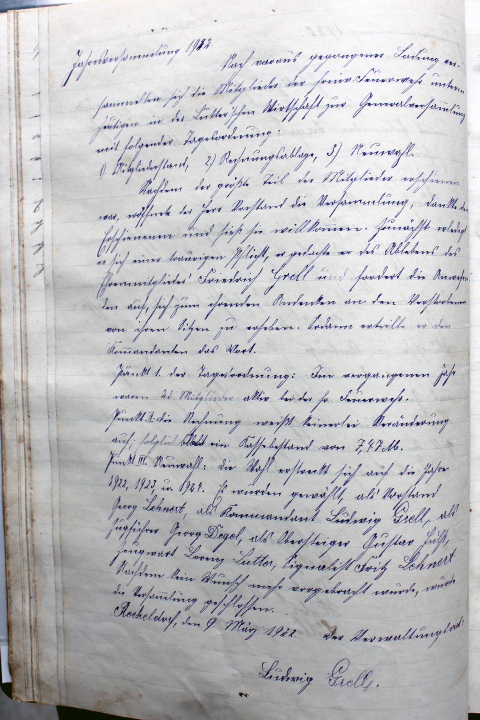 Jahresversammlung 1922
Nach voraus gegangener Ladung ver-
sammelten sich die Mitglieder der freiw. Feuerwehr unterm
Heutigen in der Lutter'schen Wirtschaft zur Generalversammlung
mit folgender Tagesordnung:
1. Mitgliederstand, 2) Rechnungsablage, 3) Neuwahl.
Nachdem der größte Teil der Mitglieder erschienen
war, eröffnete der Herr Vorstand die Versammlung, dankte den
Erschienenen und hieß sie willkommen. Zunächst erledigte
er sich einer traurigen Pflicht, er gedachte er des Ablebens des
Ehrenmitgliedes Friedrich Grell und fordert die Anwesen-
den auf, sich zum ehrenden Andenken an den Verstorbenen
von ihren Sitzen zu erheben. Sodann erteilte er dem
Kommandanten das Wort.
Punkt 1. der Tagesordnung: Im vergangenen Jahr
waren Mitglieder aktiv bei der fr. Feuerwehr.
Punkt II. die Rechnung weißt keinerlei Veränderung
auf; ein Kassebestand von 7,47 M.
Punkt III. Neuwahl: die Wahl erstreckt sich auf die Jahre
1922, 1923 u. 1924. Es wurden gewählt, als Vorstand
Georg Lehnert, als Kommandant Ludwig Grell, als
Zugführer Georg Degel, als Obersteiger Gustav
Zeugwart Lorenz Lutter, Signalist Fritz Lehnert
Nachdem kein Wunsch mehr vorgebracht wurde, wurde
die Versamlung geschlossen.
den 9. März 1922 der Verwaltungsrat:
Ludwig Grell.